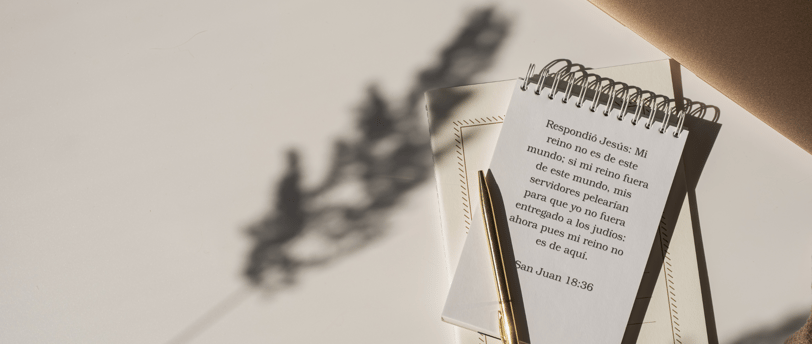 Respondió Jesús: Mi
reino no es de este
mundo; si mi reino fuera
de este mundo, mis
servidores pelearían
para que yo no fuera
entregado a los judíos;
ahora pues mi reino no
es de aquí.
San Juan 18:36